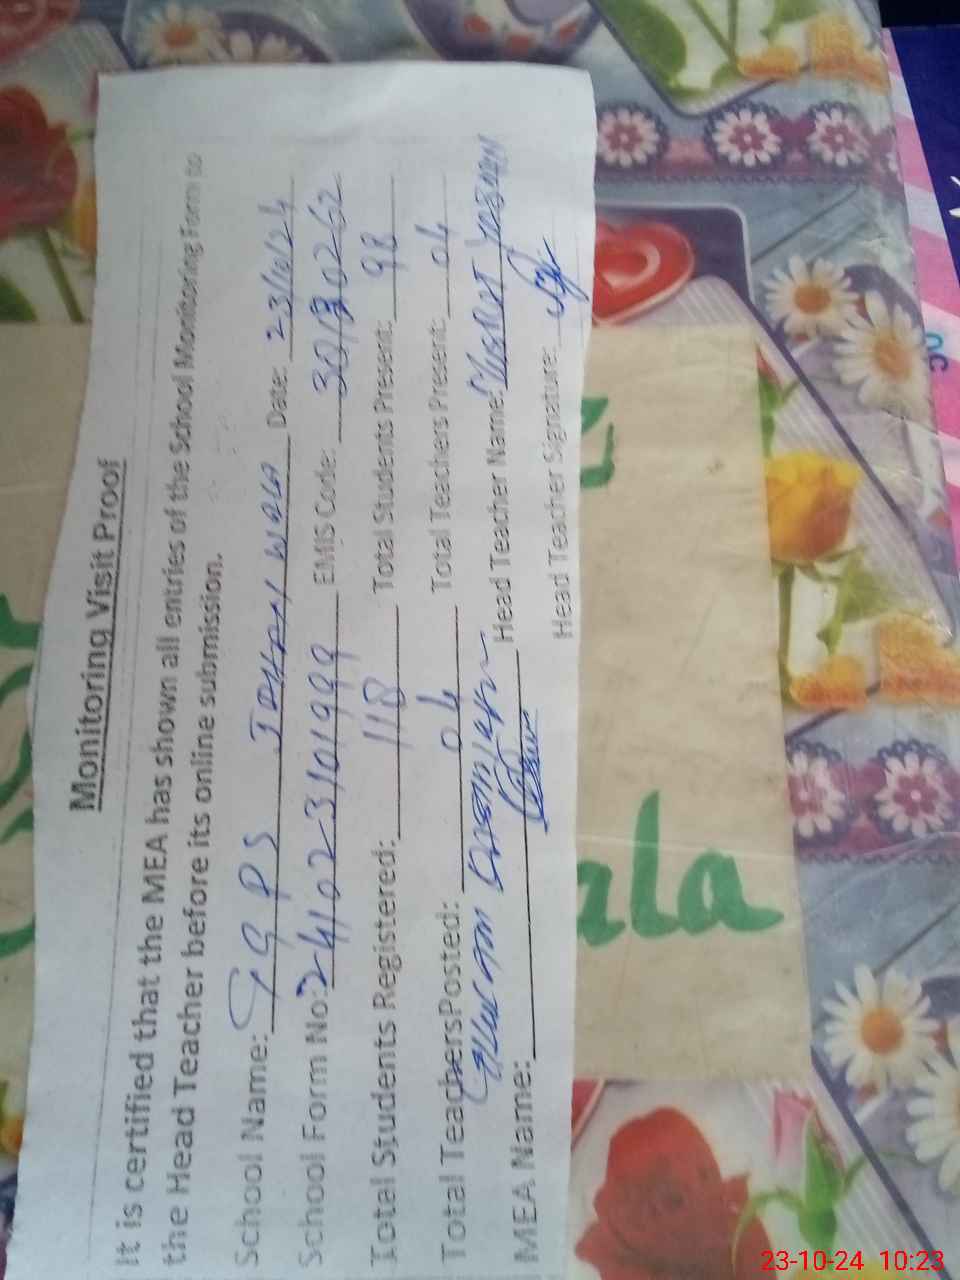 Monitoring Visit Proof
It is certified that the MEA has shown all entries of the School Monitoring Form to
the Head Teacher before its online submission.
School Name: GGPS Date: 23/10/24
School Form No: 241023101999 EMIS Code:
Total Students Registered: 118 Total Students Present: 98
Total Teachers Posted: 04 Total Teachers Present: 04
MEA Name: Head Teacher Name: Nusrat
Head Teacher Signature:
ala
23-10-24 10:23